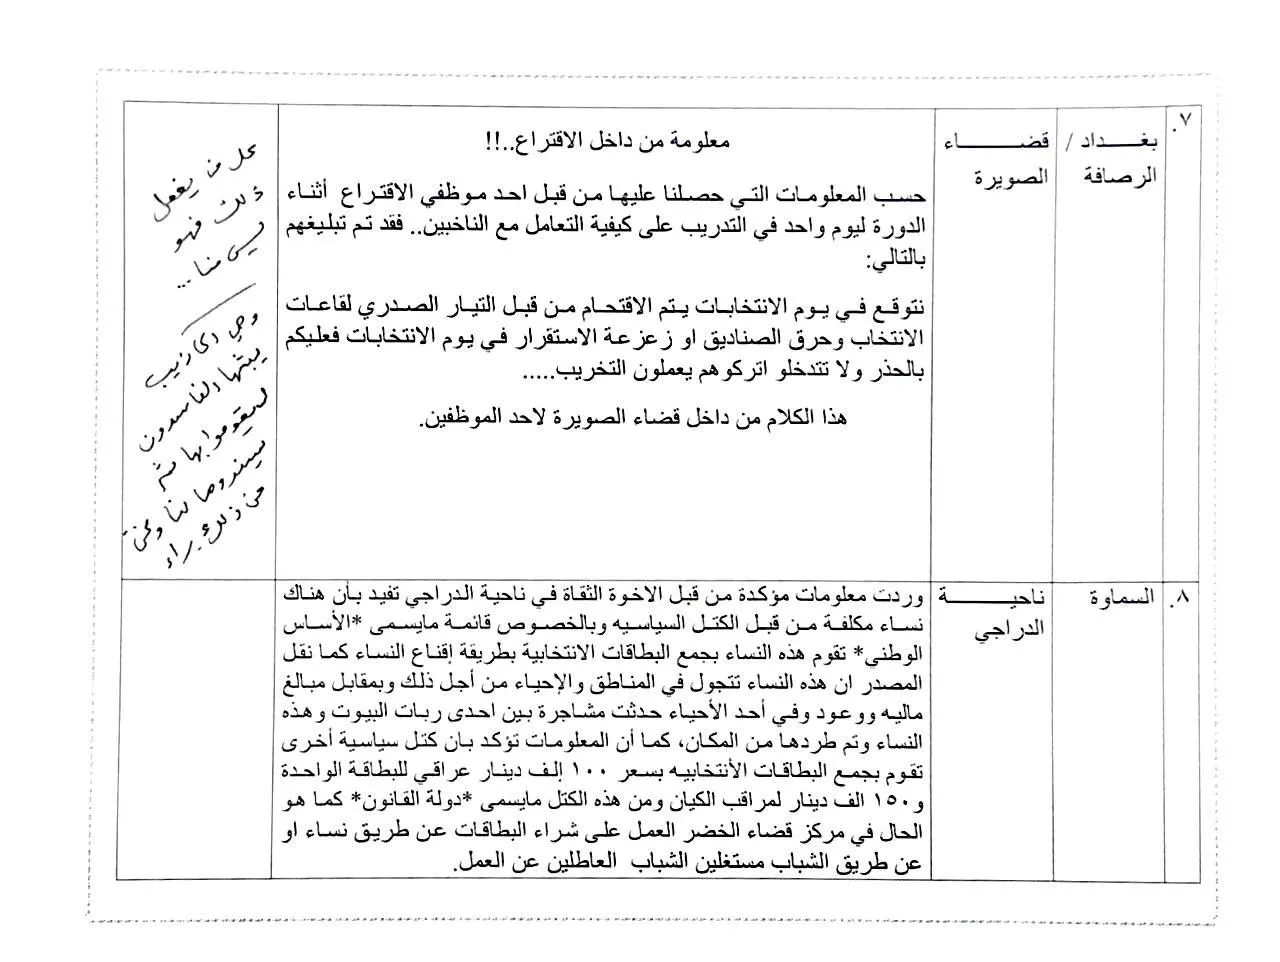 ٧.
بغداد /
الرصافة
قضاء
الصويرة
معلومة من داخل الاقتراع..!!
حسب المعلومات التي حصلنا عليها من قبل احد موظفي الاقتراع أثناء
الدورة ليوم واحد في التدريب على كيفية التعامل مع الناخبين.. فقد تم تبليغهم
بالتالي:
نتوقع في يوم الانتخابات يتم الاقتحام من قبل التيار الصدري لقاعات
الانتخاب وحرق الصناديق او زعزعة الاستقرار في يوم الانتخابات فعليكم
بالحذر ولا تتدخلو اتركوهم يعملون التخريب.....
هذا الكلام من داخل قضاء الصويرة لاحد الموظفين.
من يفعل
ذلك فهو
ليس منا ...
وهي اكاذيب
يبثها الفاسدون
ليقوموا بها ثم
سيسندوها لنا ونحن
من ذلك براء
٨.
السماوة
ناحية
الدراجي
وردت معلومات مؤكدة من قبل الاخوة الثقاة في ناحية الدراجي تفيد بأن هناك
نساء مكلفة من قبل الكتل السياسيه وبالخصوص قائمة مايسمى *الأساس
الوطني* تقوم هذه النساء بجمع البطاقات الانتخابية بطريقة إقناع النساء كما نقل
المصدر ان هذه النساء تتجول في المناطق والإحياء من أجل ذلك وبمقابل مبالغ
ماليه ووعود وفي أحد الأحياء حدثت مشاجرة بين احدى ربات البيوت وهذه
النساء وتم طردها من المكان، كما أن المعلومات تؤكد بان كتل سياسية أخرى
تقوم بجمع البطاقات الأنتخابيه بسعر ١٠٠ إلف دينار عراقي للبطاقة الواحدة
و١٥٠ الف دينار لمراقب الكيان ومن هذه الكتل مايسمى *دولة القانون* كما هو
الحال في مركز قضاء الخضر العمل على شراء البطاقات عن طريق نساء او
عن طريق الشباب مستغلين الشباب العاطلين عن العمل.